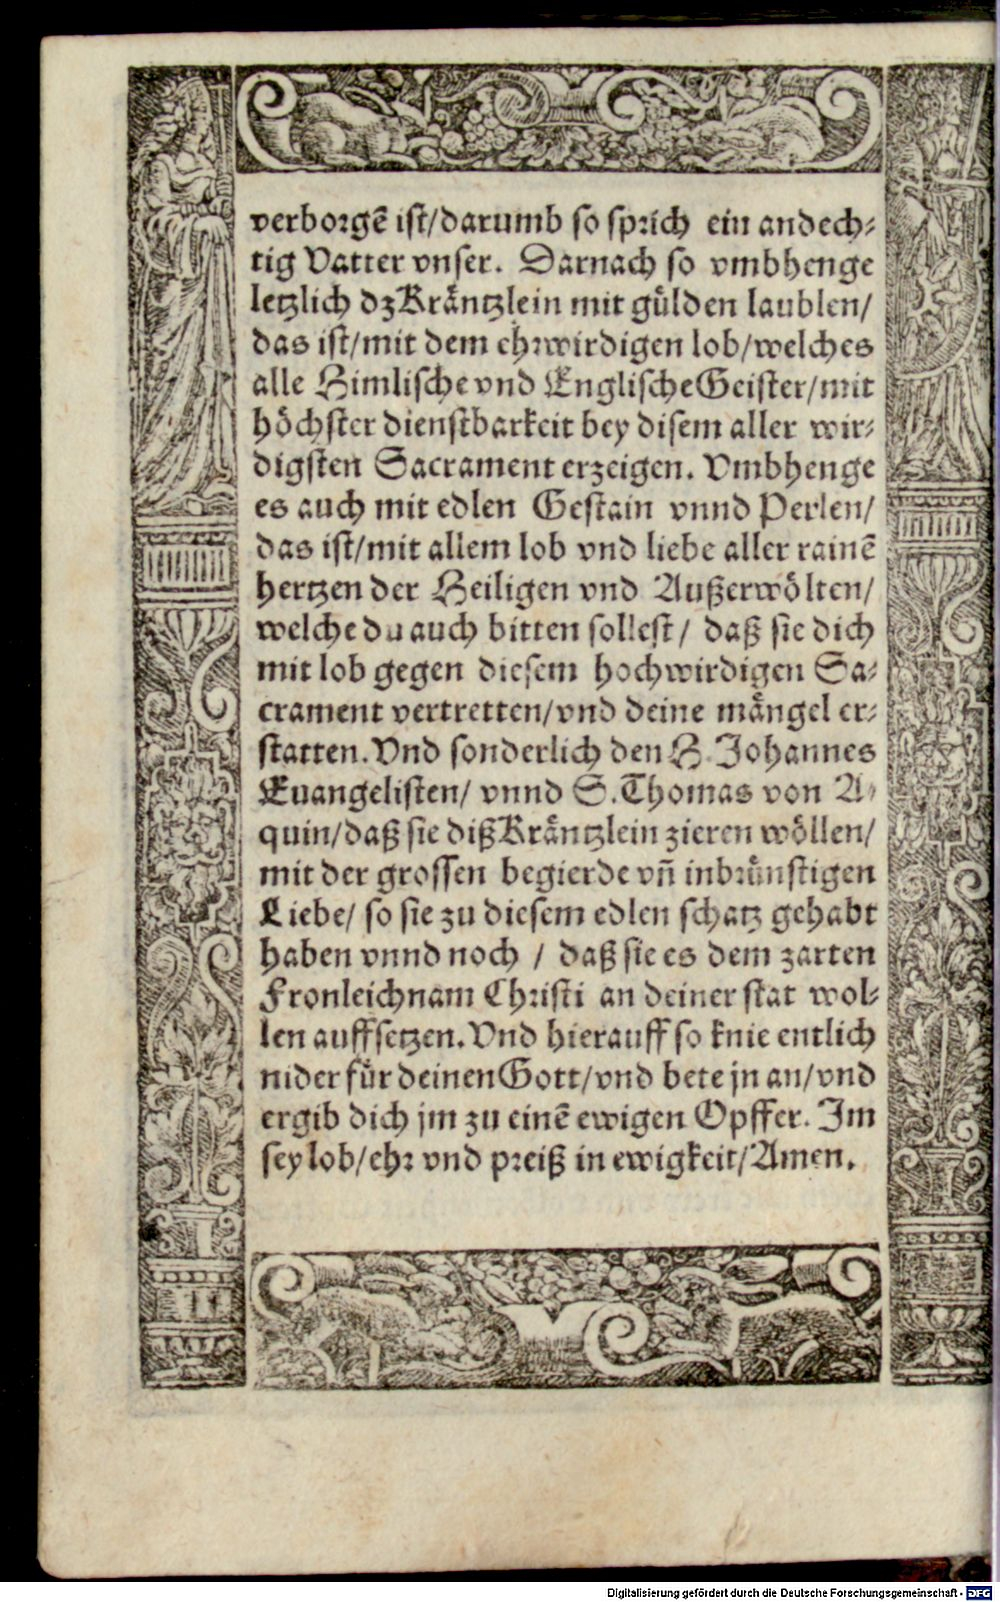 verborgē ist/darumb so sprich ein andech⸗
tig Vatter vnser. Darnach so vmbhenge
letzlich dz Kräntzlein mit gülden laublen/
das ist/mit dem ehrwirdigen lob/welches
alle Himlische vnd Englische Geister/mit
höchster dienstbarkeit bey disem aller wir⸗
digsten Sacrament erzeigen. Vmbhenge
es auch mit edlen Gestain vnnd Perlen/
das ist/mit allem lob vnd liebe aller rainē
hertzen der Heiligen vnd Außerwölten/
welche du auch bitten sollest/ daß sie dich
mit lob gegen diesem hochwirdigen Sa⸗
crament vertretten/vnd deine mängel er⸗
statten. Vnd sonderlich den H. Johannes
Euangelisten/ vnnd S. Thomas von A⸗
quin/daß sie diß Kräntzlein zieren wöllen/
mit der grossen begierde vñ inbrünstigen
Liebe/ so sie zu diesem edlen schatz gehabt
haben vnnd noch / daß sie es dem zarten
Fronleichnam Christi an deiner stat wol⸗
len auffsetzen. Vnd hierauff so knie entlich
nider für deinen Gott/vnd bete jn an/vnd
ergib dich jm zu einē ewigen Opffer. Im
sey lob/ehr vnd preiß in ewigkeit/Amen.
Digitalisierung gefördert durch die Deutsche Forschungsgemeinschaft - DFG